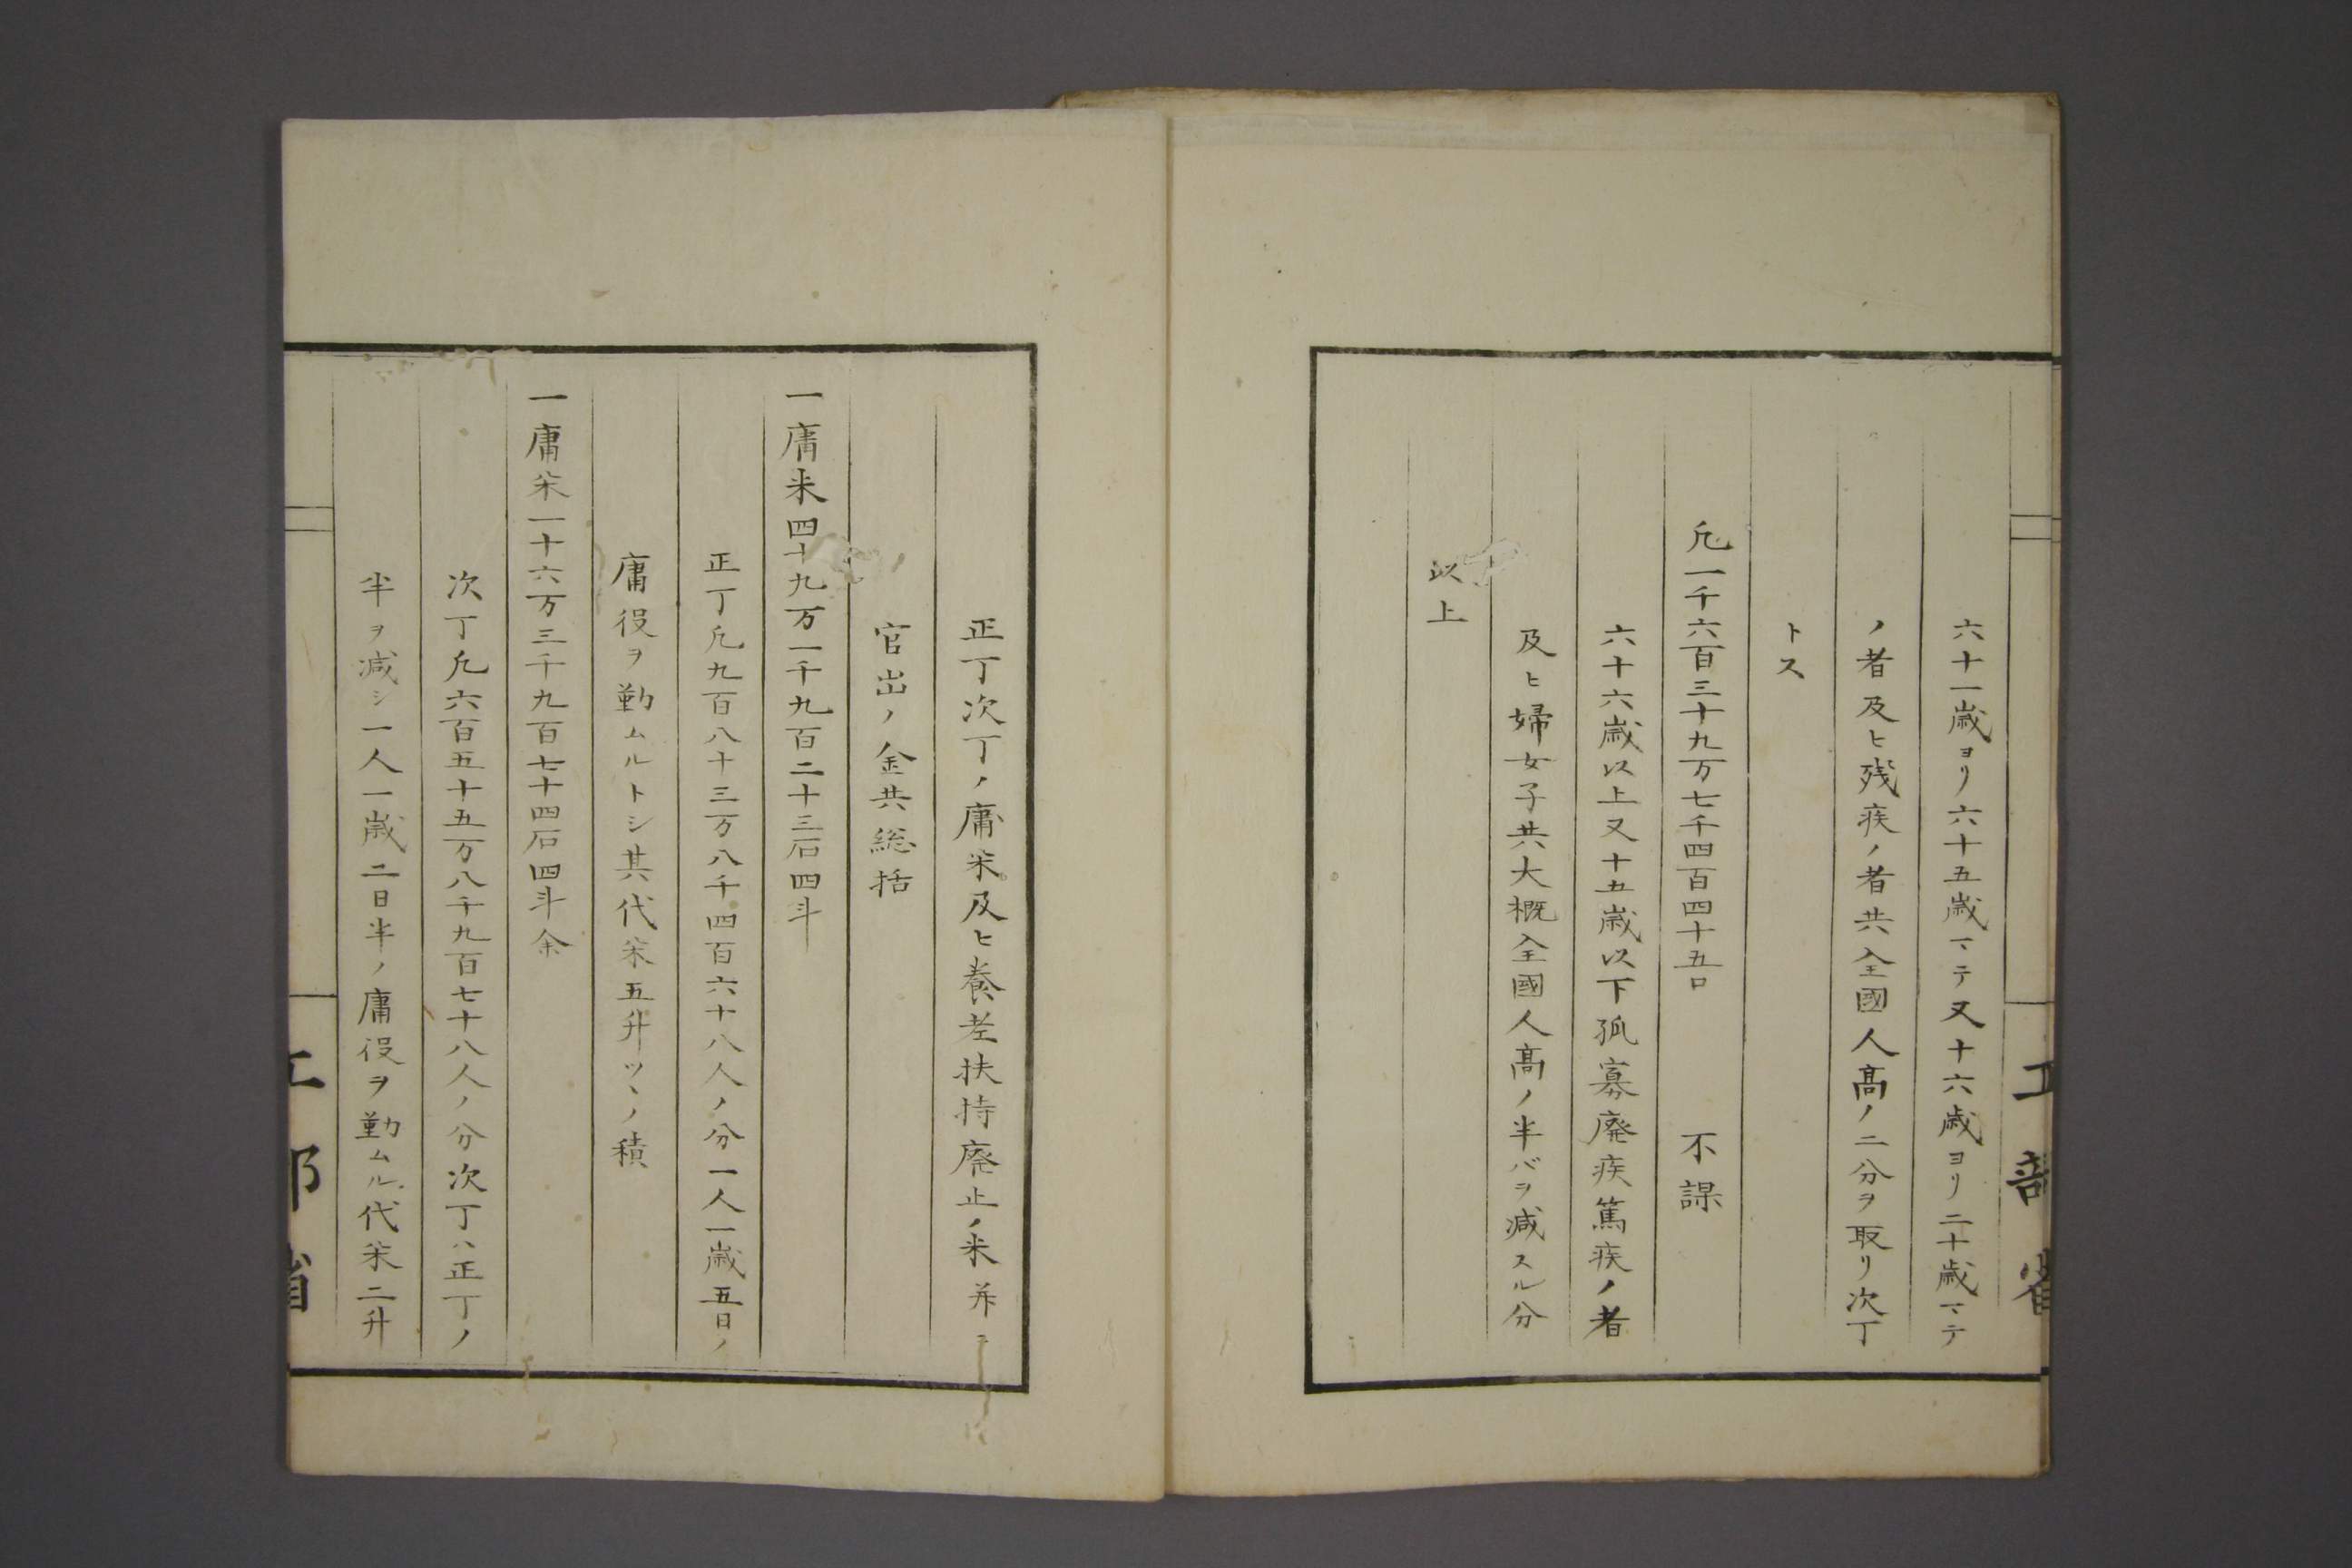 六十一歳ヨリ六十五歳マテ又十六歳ヨリ二十歳マテ
ノ者及ヒ残疾ノ者共全國人高ノ二分ヲ取リ次丁
トス
凡一千六百三十九万七千四百四十五口 不課
六十六歳以上又十五歳以下孤寡廃疾篤疾ノ者
及ヒ婦女子共大概全國人高ノ半バヲ減スル分
以上
工部省
正丁次丁ノ庸米及ヒ養老扶持廃止ノ米并ニ
官出ノ金共総括
一庸米四十九万一千九百二十三石四斗
正丁凡九百八十三万八千四百六十八人ノ分一人一歳五日ノ
庸役ヲ勤ムルトシ其代米五升ツヽノ積
一庸米一十六万三千九百七十四石四斗余
次丁凡六百五十五万八千九百七十八人ノ分次丁ハ正丁ノ
半ヲ減シ一人一歳二日半ノ庸役ヲ勤ムル代米二升
工部省